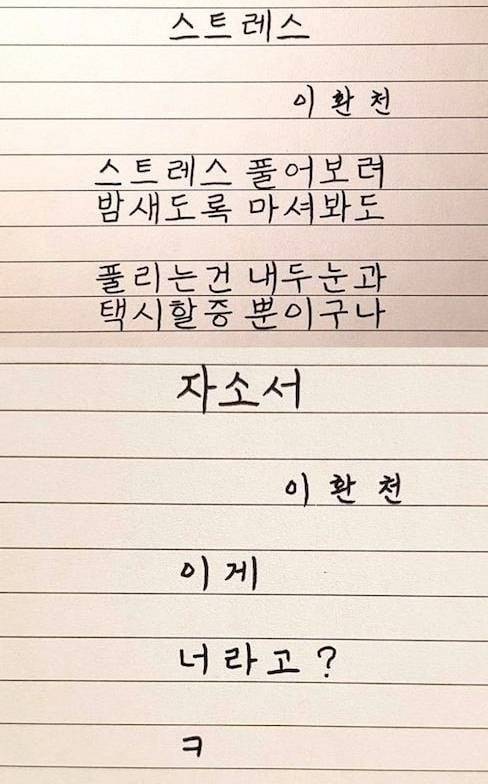 스트레스
이환천
스트레스 풀어보려
밤새도록 마셔봐도
풀리는건 내두눈과
택시할증 뿐이구나
자소서
이환천
이게
너라고?
ㅋ